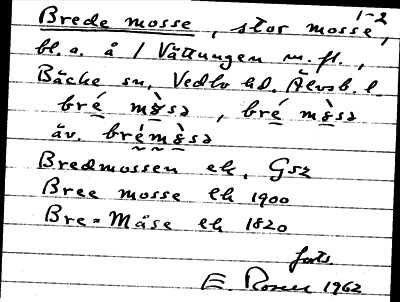 1-2
Brede mosse, stor mosse,
bl.a. å / Vättungen m.fl.,
Bäcke sn, Vedbo hd. Älvsb. l.
bré mo̊̀sə, bré mo̊̀sə
äv. brémo̊̀sə
Bredmossen ek. Gsz
Bree mosse lk 1900
Bre=Måse lk 1820
E. Rosen 1962